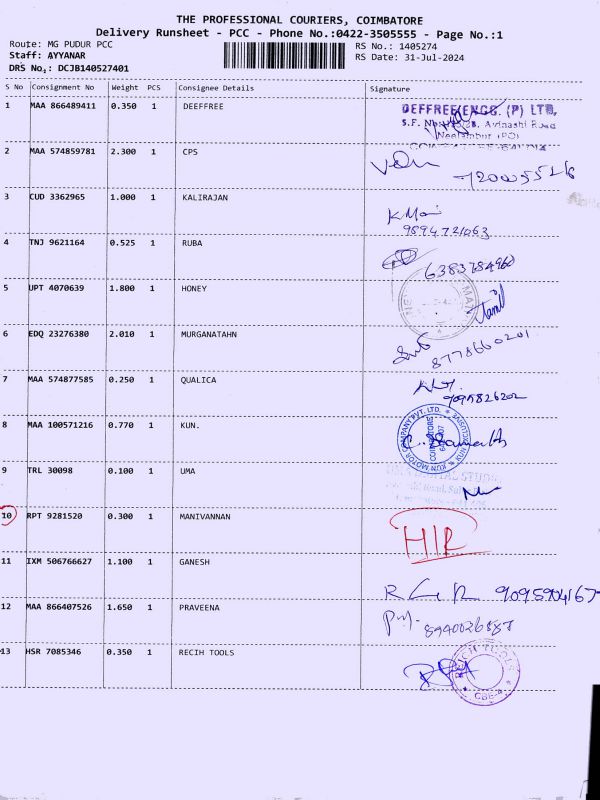 THE PROFESSIONAL COURIERS, COIMBATORE
Delivery Runsheet - PCC - Phone No.:0422-3505555 - Page No.:1
Route: MG PUDUR PCC
Staff: AYYANAR
DRS No,: DCJB140527401
RS No.: 1405274
RS Date: 31-Jul-2024
S No Consignment No Weight PCS Consignee Details Signature
1 MAA 866489411 0.350 1 DEEFFREE
DEFFREE ENGG. (P) LTD,
Avinashi Road
Neelambur (PO)
2 MAA 574859781 2.300 1 CPS
3 CUD 3362965 1.000 1 KALIRAJAN
9894721063
4 TNJ 9621164 0.525 1 RUBA
6383784960
5 UPT 4070639 1.800 1 HONEY
Tamil
6 EDQ 23276380 2.010 1 MURGANATAHN
8778660201
7 MAA 574877585 0.250 1 QUALICA
9095826202
8 MAA 100571216 0.770 1 KUN.
KUN MOTOR COMPANY PVT. LTD.
KUN EXCLUSIVE
COIMBATORE
9 TRL 30098 0.100 1 UMA
UMA DIGITAL STUDIO
10 RPT 9281520 0.300 1 MANIVANNAN
11 IXM 506766627 1.100 1 GANESH
9095904167
12 MAA 866407526 1.650 1 PRAVEENA
8940026887
13 HSR 7085346 0.350 1 RECIH TOOLS
TOOLS
CBE-6